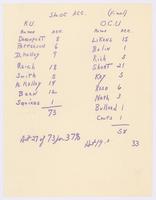 Shot Acc. (Final)
K.U. O.C.U.
Names Acc. Names Acc.
Davenport 8 Likens 15
Patterson 6 Bolin 1
D. Holley 9 Rich 5
Reich 18 Short 21
Smith 5 Kay 5
N. Holley 14 Ross 6
Bann 12 Nash 3
Squires 1 Bullard 1
73 Couts 1
58
Hit 27 of 73 for 37%
Hit 19 33